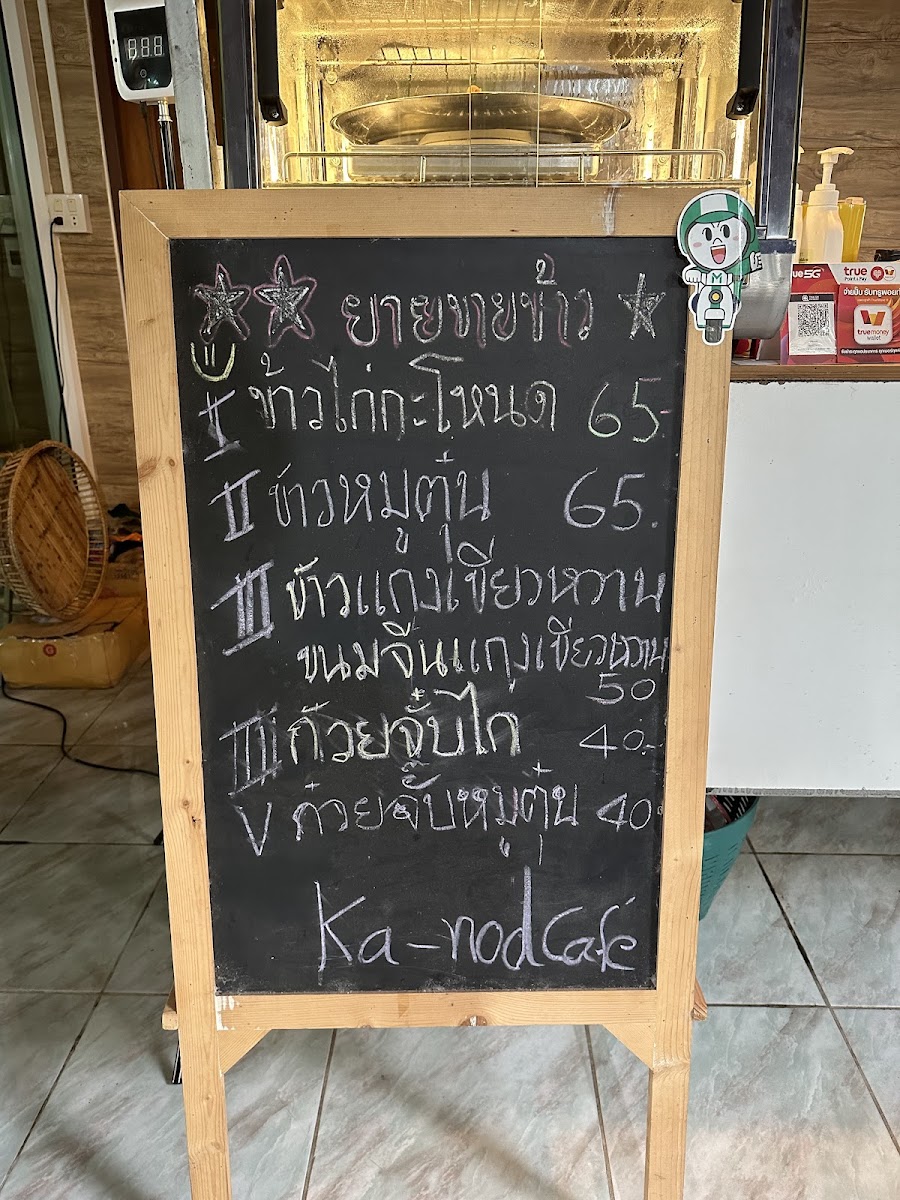 ยายขายข้าว
I ข้าวไก่กะโหนด 65.-
II ข้าวหมูตุ๋น 65.
III ข้าวแกงเขียวหวาน
ขนมจีนแกงเขียวหวาน
50
IIII ก๋วยจั๊บไก่ 40.-
V ก๋วยจั๊บหมูตุ๋น 40.
Ka-nodCafé
M
ue5G
true
Point & Pay
จ่ายปั๊บ รับทรูพอยท์
truemoney
wallet